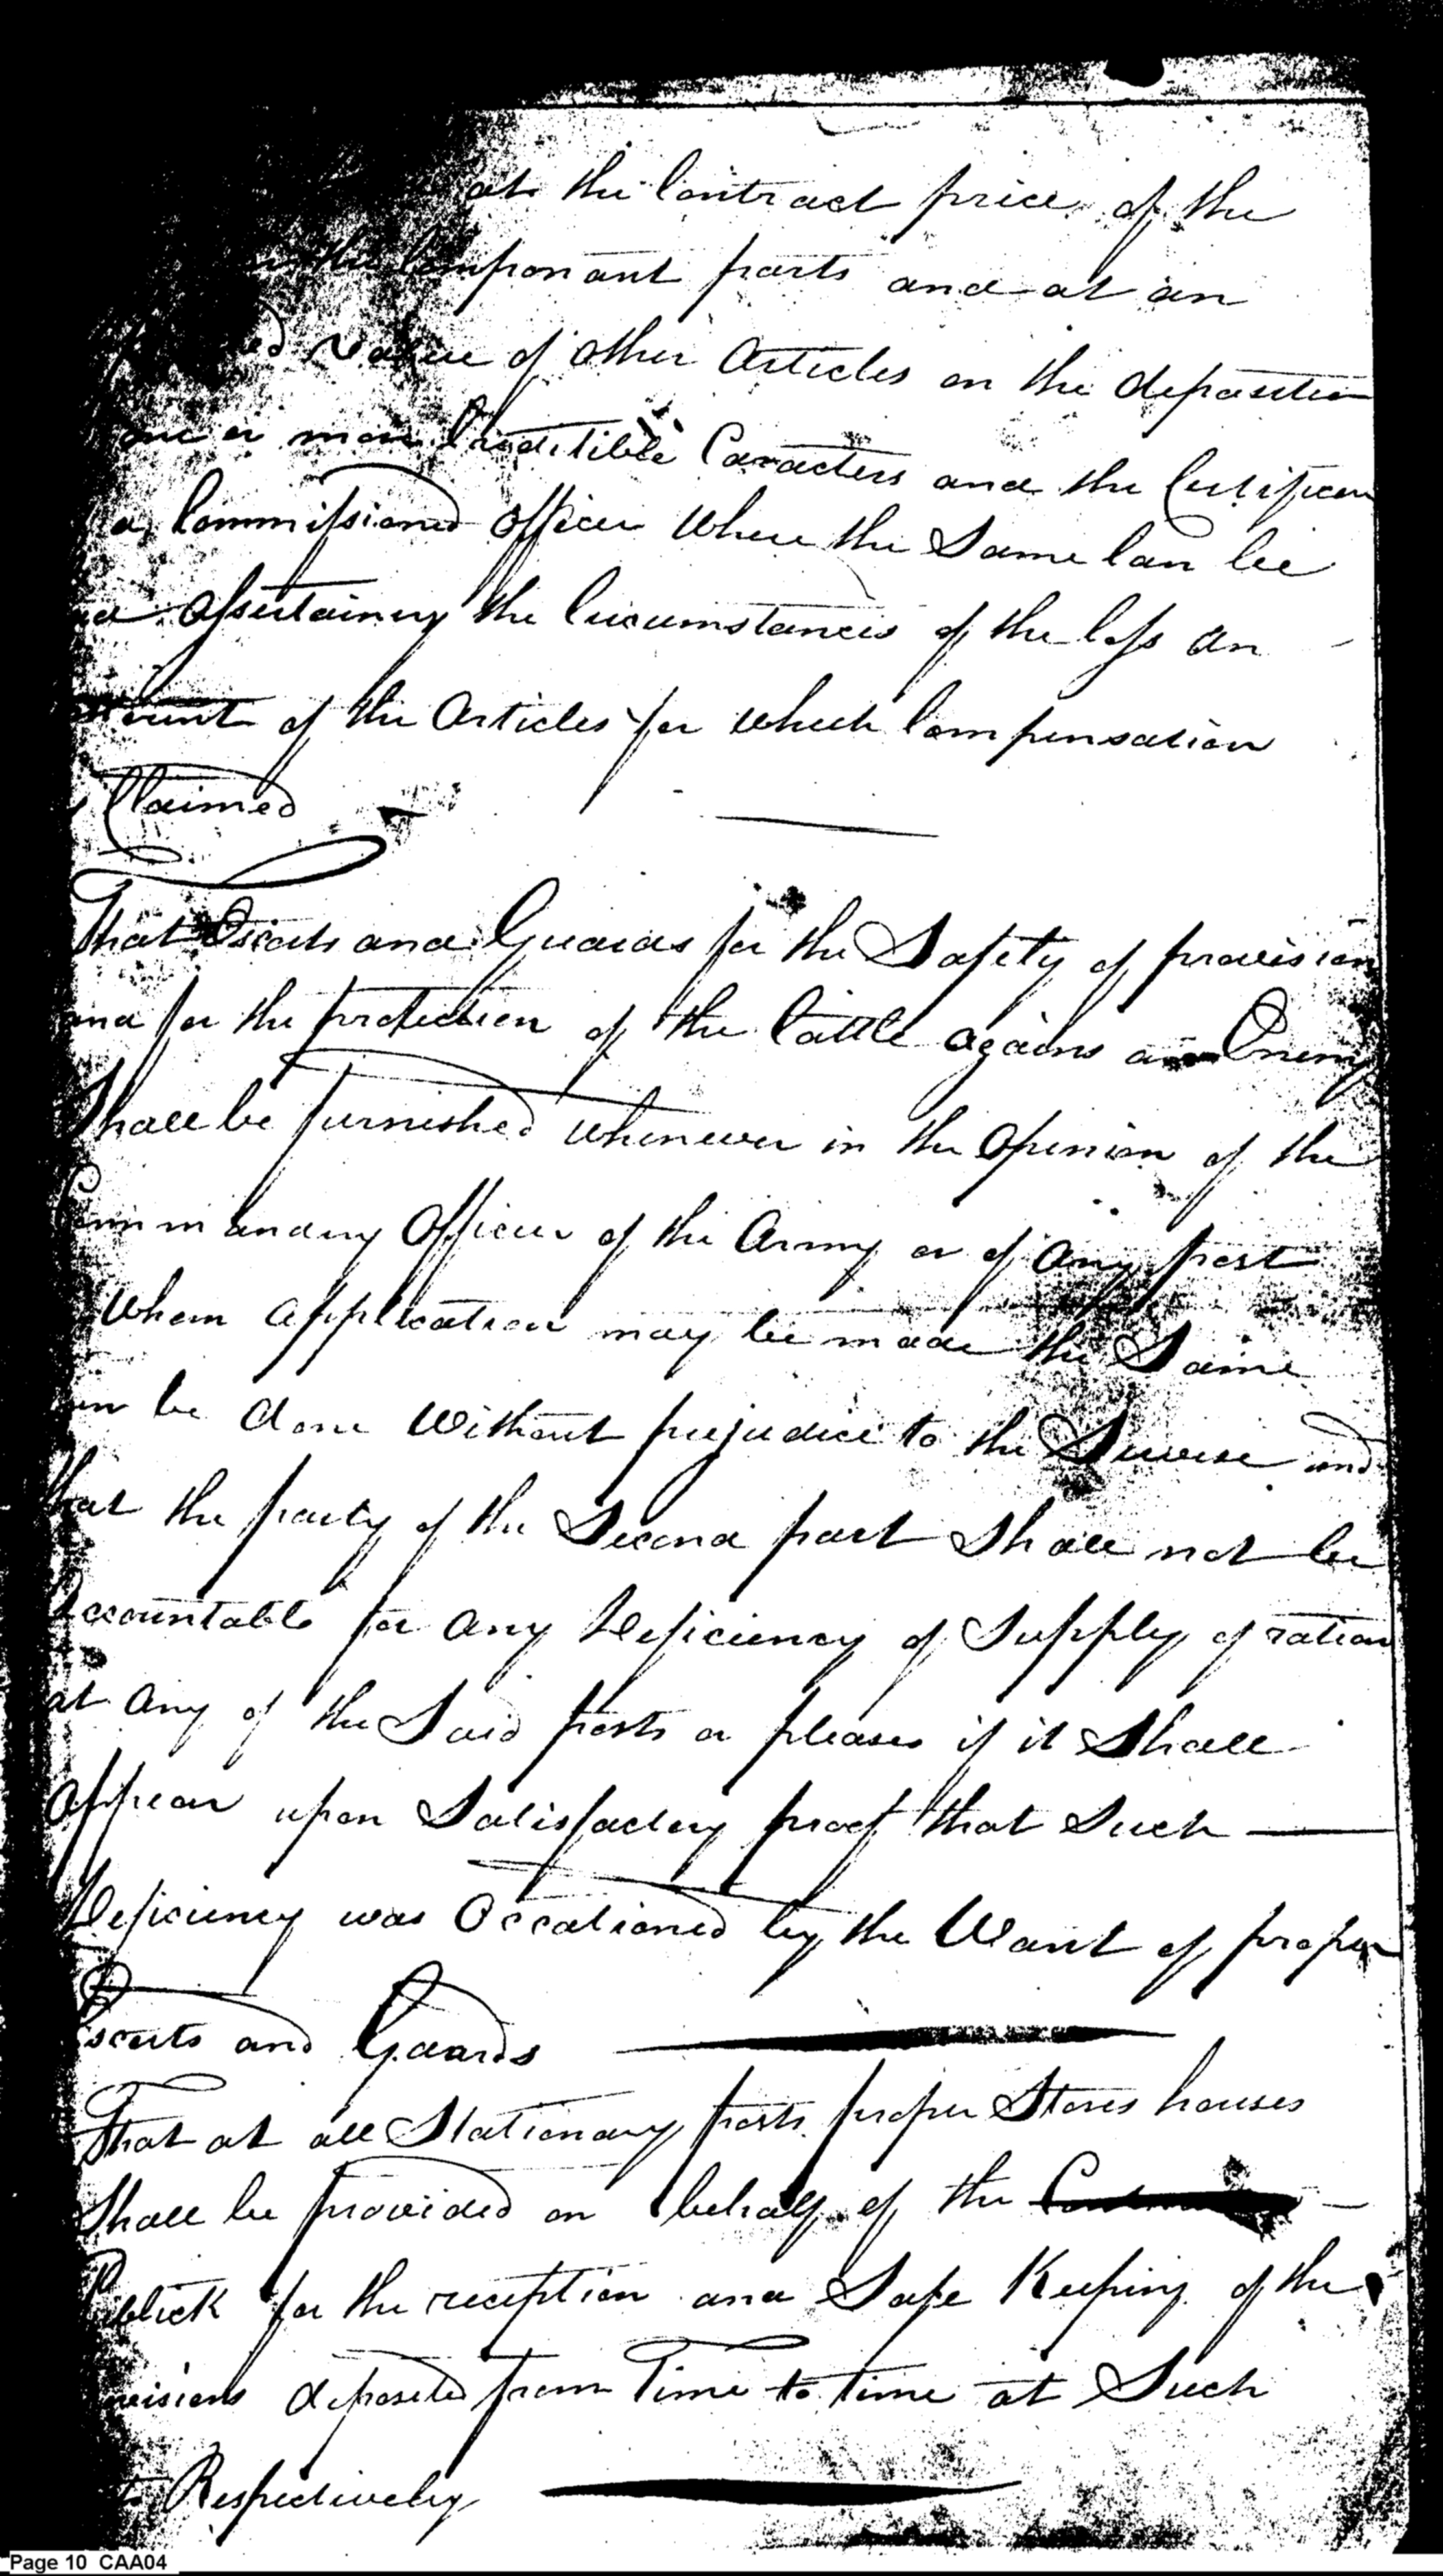 at the Contract price of the
Componant parts and at an
value of other Articles on the deposition
one or more Creditible Caracters and the Certifican
a Commissioned officer where the Same Can be
Assertaining the Circumstances of the loss an
of the Articles for which Compensation
Claimed
That Escorts and Guards for the Safety of provision
and for the protection of the Cattle agains an Enemy
Shall be furnished whenever in the Opinion of the
Commanding Officer of the Army or of any post
Whom application may be made the Same
be done Without prejudice to the Service and
that the party of the Second part Shall not be
Accountable for any Deficiency of Supply of ration
at any of the Said posts or pleases if it Shall
appear upon Satisfactory proof that Such
Deficiency was Occationed by the Want of proper
Escorts and Gaards
That at all Stationary posts proper Stores houses
Shall be provided on behalf of the
Publick for the reception and Safe Keeping of the
visions deposited from Time to time at Such
Respectively
Page 10 CAA04